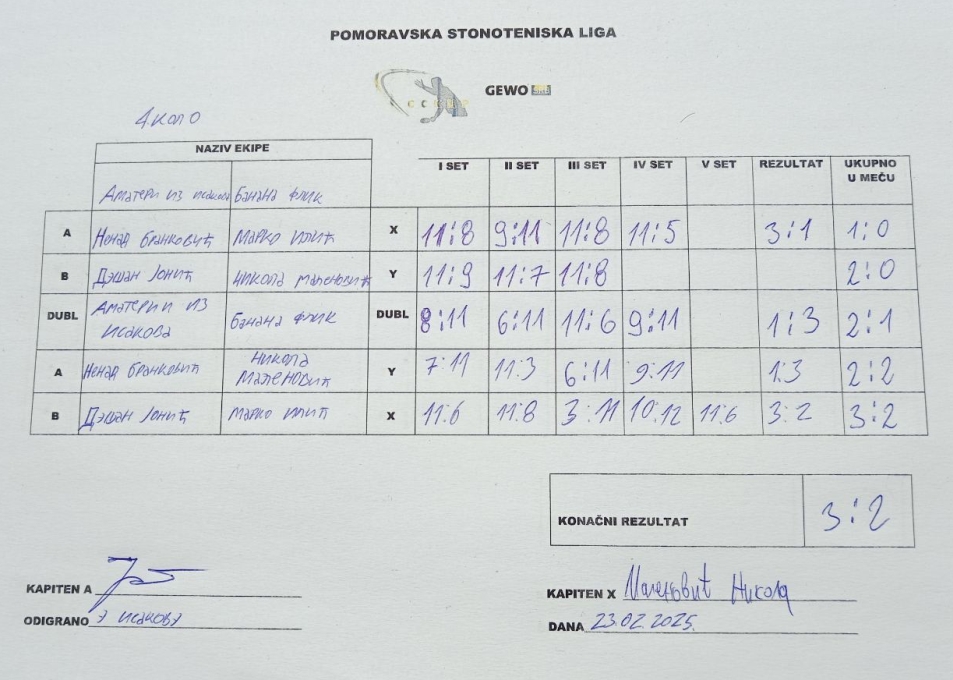 POMORAVSKA STONOTENISKA LIGA
GEWO
4 коло
NAZIV EKIPE
I SET II SET III SET IV SET V SET REZULTAT UKUPNO U MEČU
Аматери из исакова Банана флик
A Ненад Бранковић Марко Илић X 11:8 9:11 11:8 11:5 3:1 1:0
B Душан Јонић Никола Маленовић Y 11:9 11:7 11:8 2:0
DUBL Аматери из исакова Банана флик DUBL 8:11 6:11 11:6 9:11 1:3 2:1
A Ненад Бранковић Никола Маленовић Y 7:11 11:3 6:11 9:11 1:3 2:2
B Душан Јонић Марко Илић X 11:6 11:8 3:11 10:12 11:6 3:2 3:2
KONAČNI REZULTAT 3:2
KAPITEN A
KAPITEN X Маленовић Никола
ODIGRANO у исакову
DANA 23.02.2025.